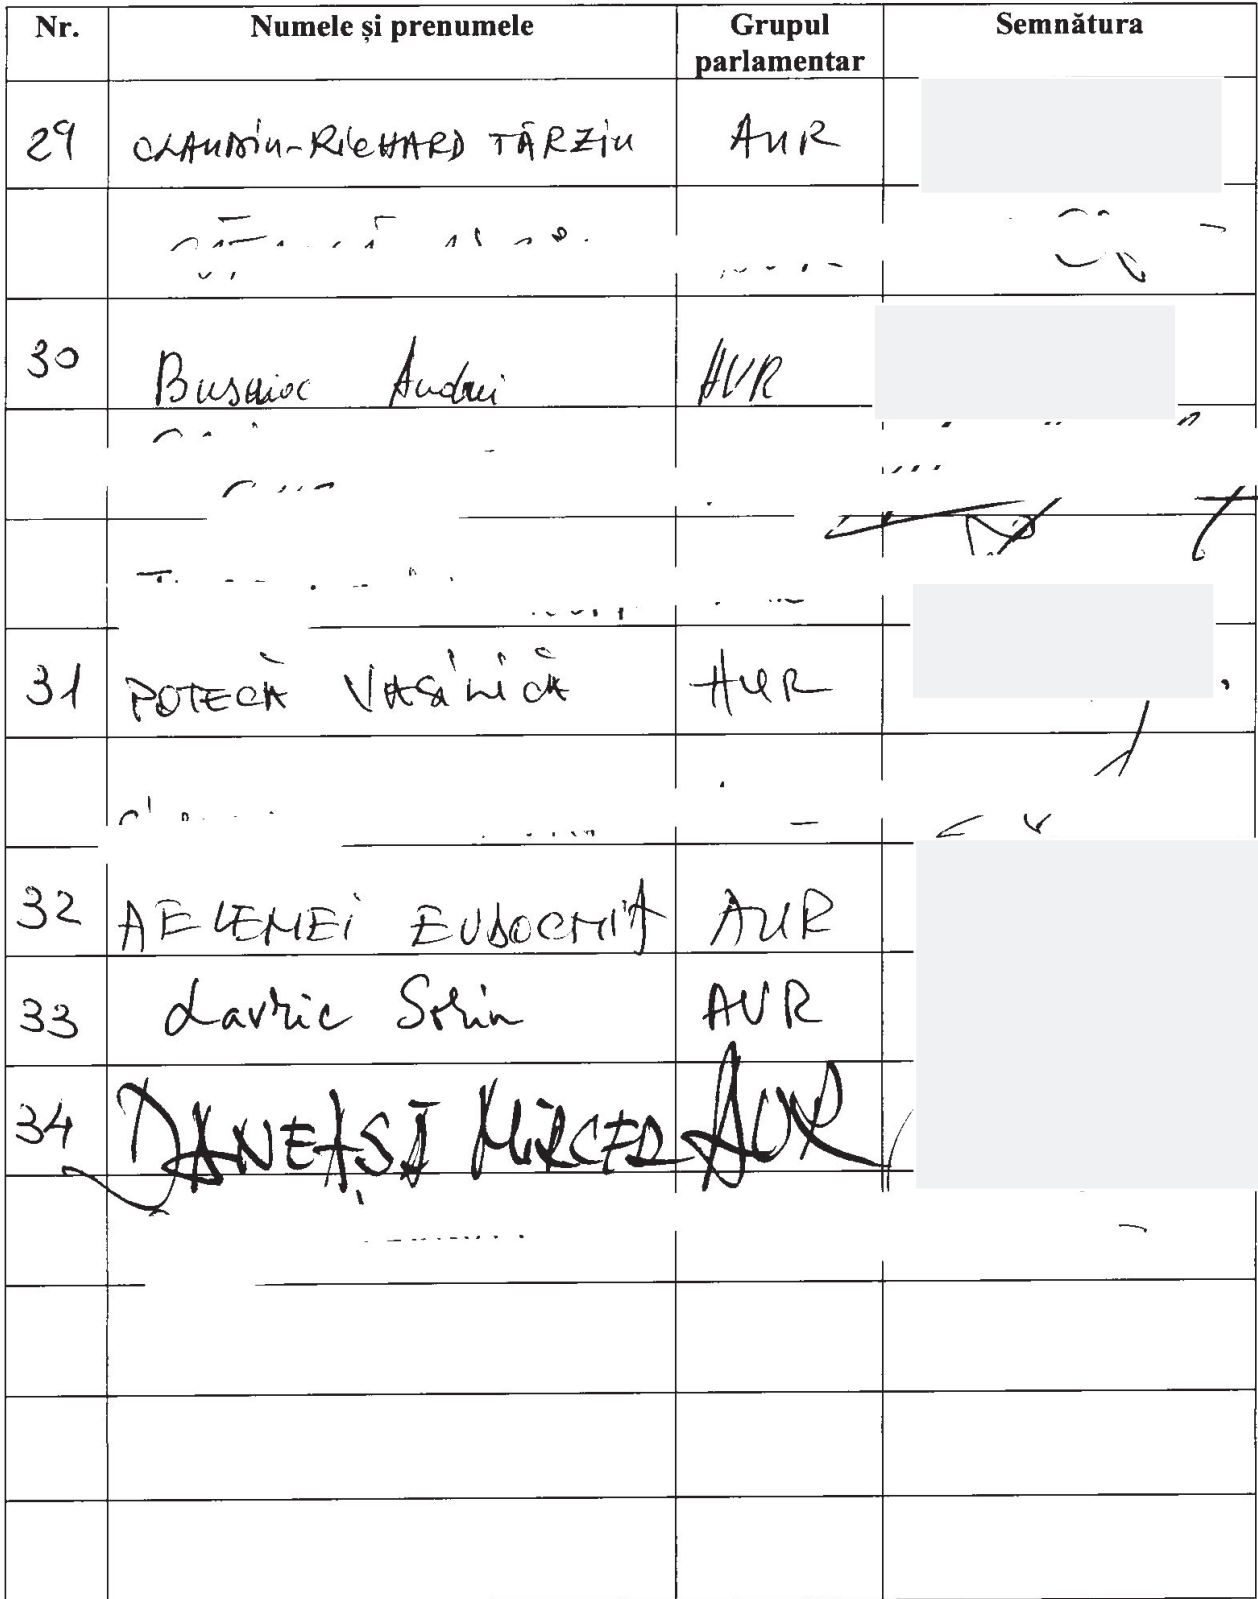 Nr. Numele și prenumele Grupul parlamentar Semnătura
29 CLAUDIU-RICHARD TÂRZIU AUR
30 Busuioc Andrei AUR
31 POTECĂ VASILICĂ AUR
32 AFLEMEI EUDOCHIA AUR
33 Lavric Sorin AUR
34 DĂNEASĂ MIRCEA AUR